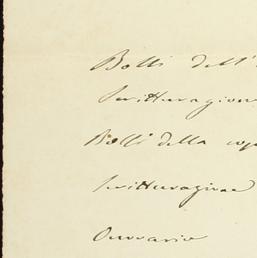 Bolli dell'
Scritturazione
Bolli della cop
Scritturazione
Onorario